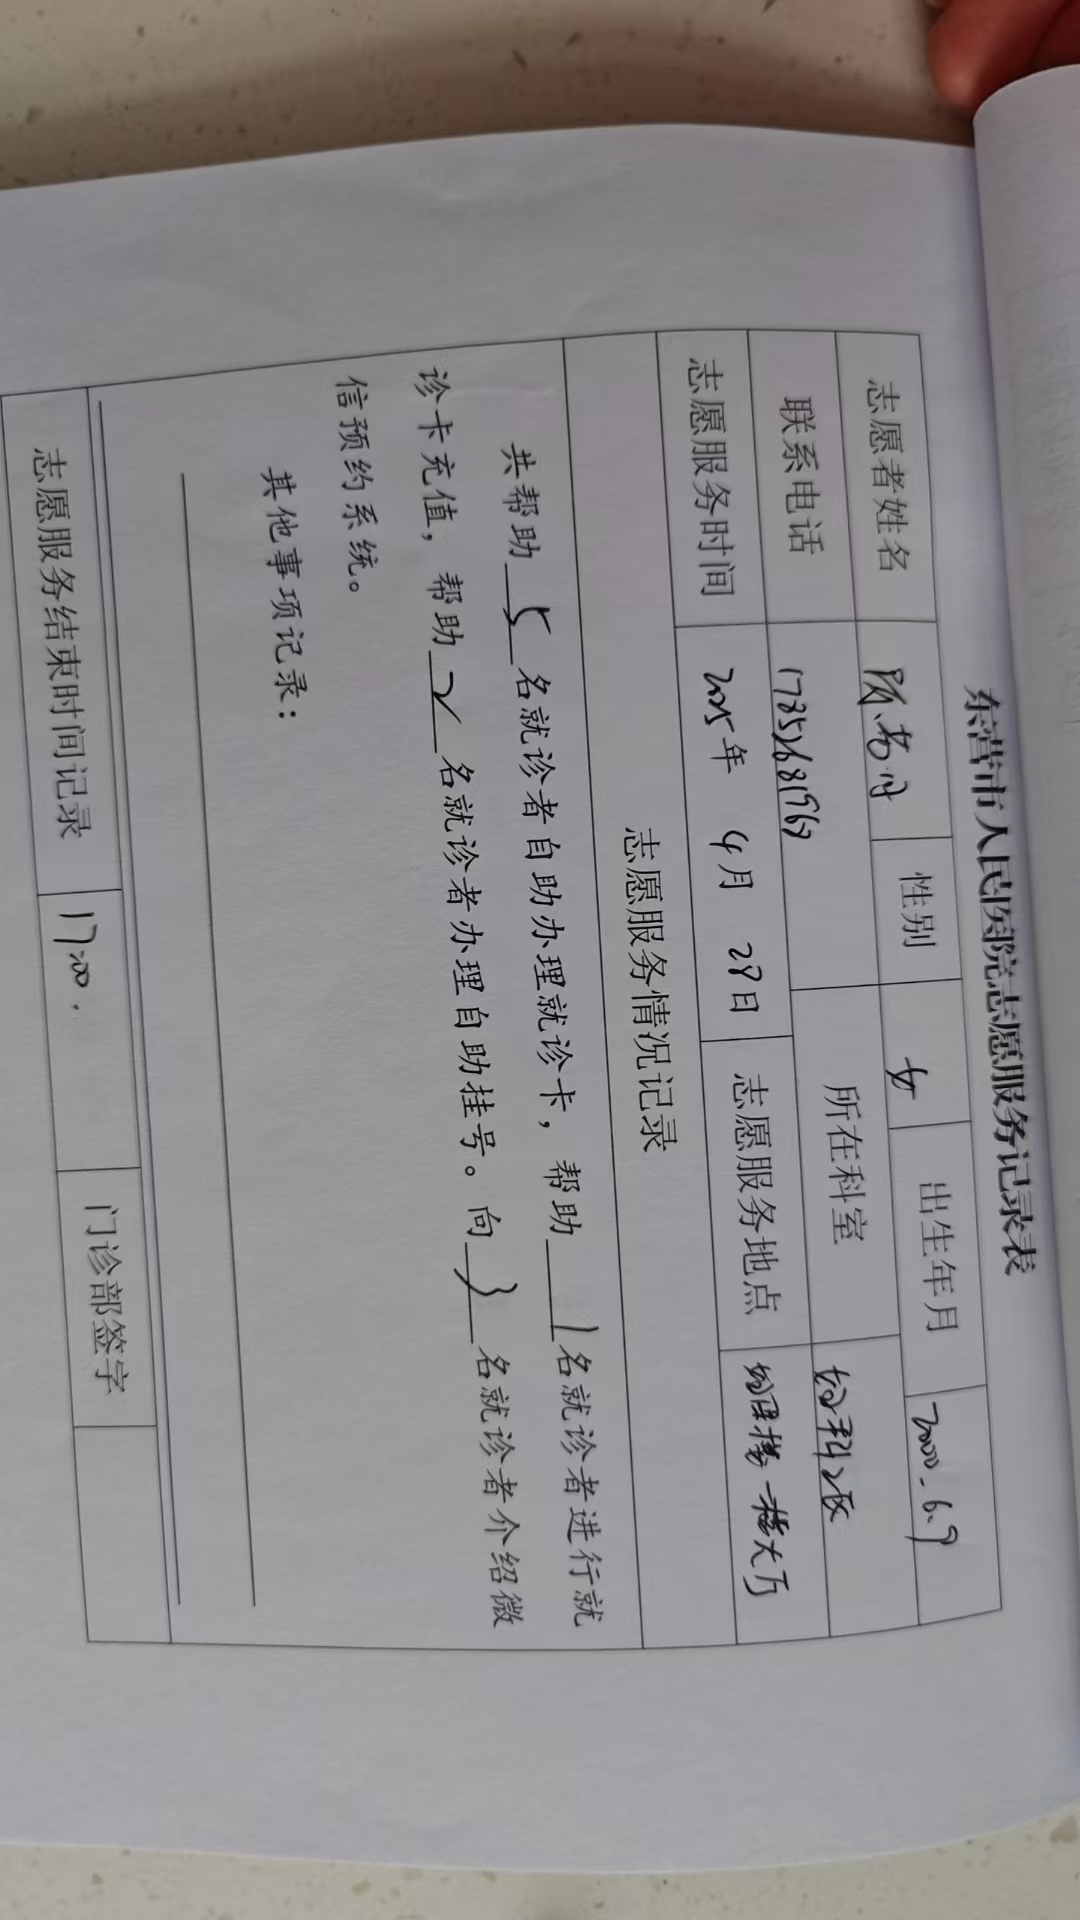 东营市人民医院志愿服务记录表
志愿者姓名 性别 女 出生年月 2000.6.9
联系电话 所在科室 妇科2区
志愿服务时间 2025年 4月 28日 志愿服务地点 妇田楼一楼大厅
志愿服务情况记录
共帮助 5 名就诊者自助办理就诊卡，帮助 1 名就诊者进行就
诊卡充值，帮助 2 名就诊者办理自助挂号。向 3 名就诊者介绍微
信预约系统。
其他事项记录：
志愿服务结束时间记录 17:00. 门诊部签字